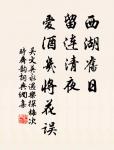 西湖舊日
留連清夜
愛酒幾將花誤
吳文英永遇樂探梅次
時齋韻詞典